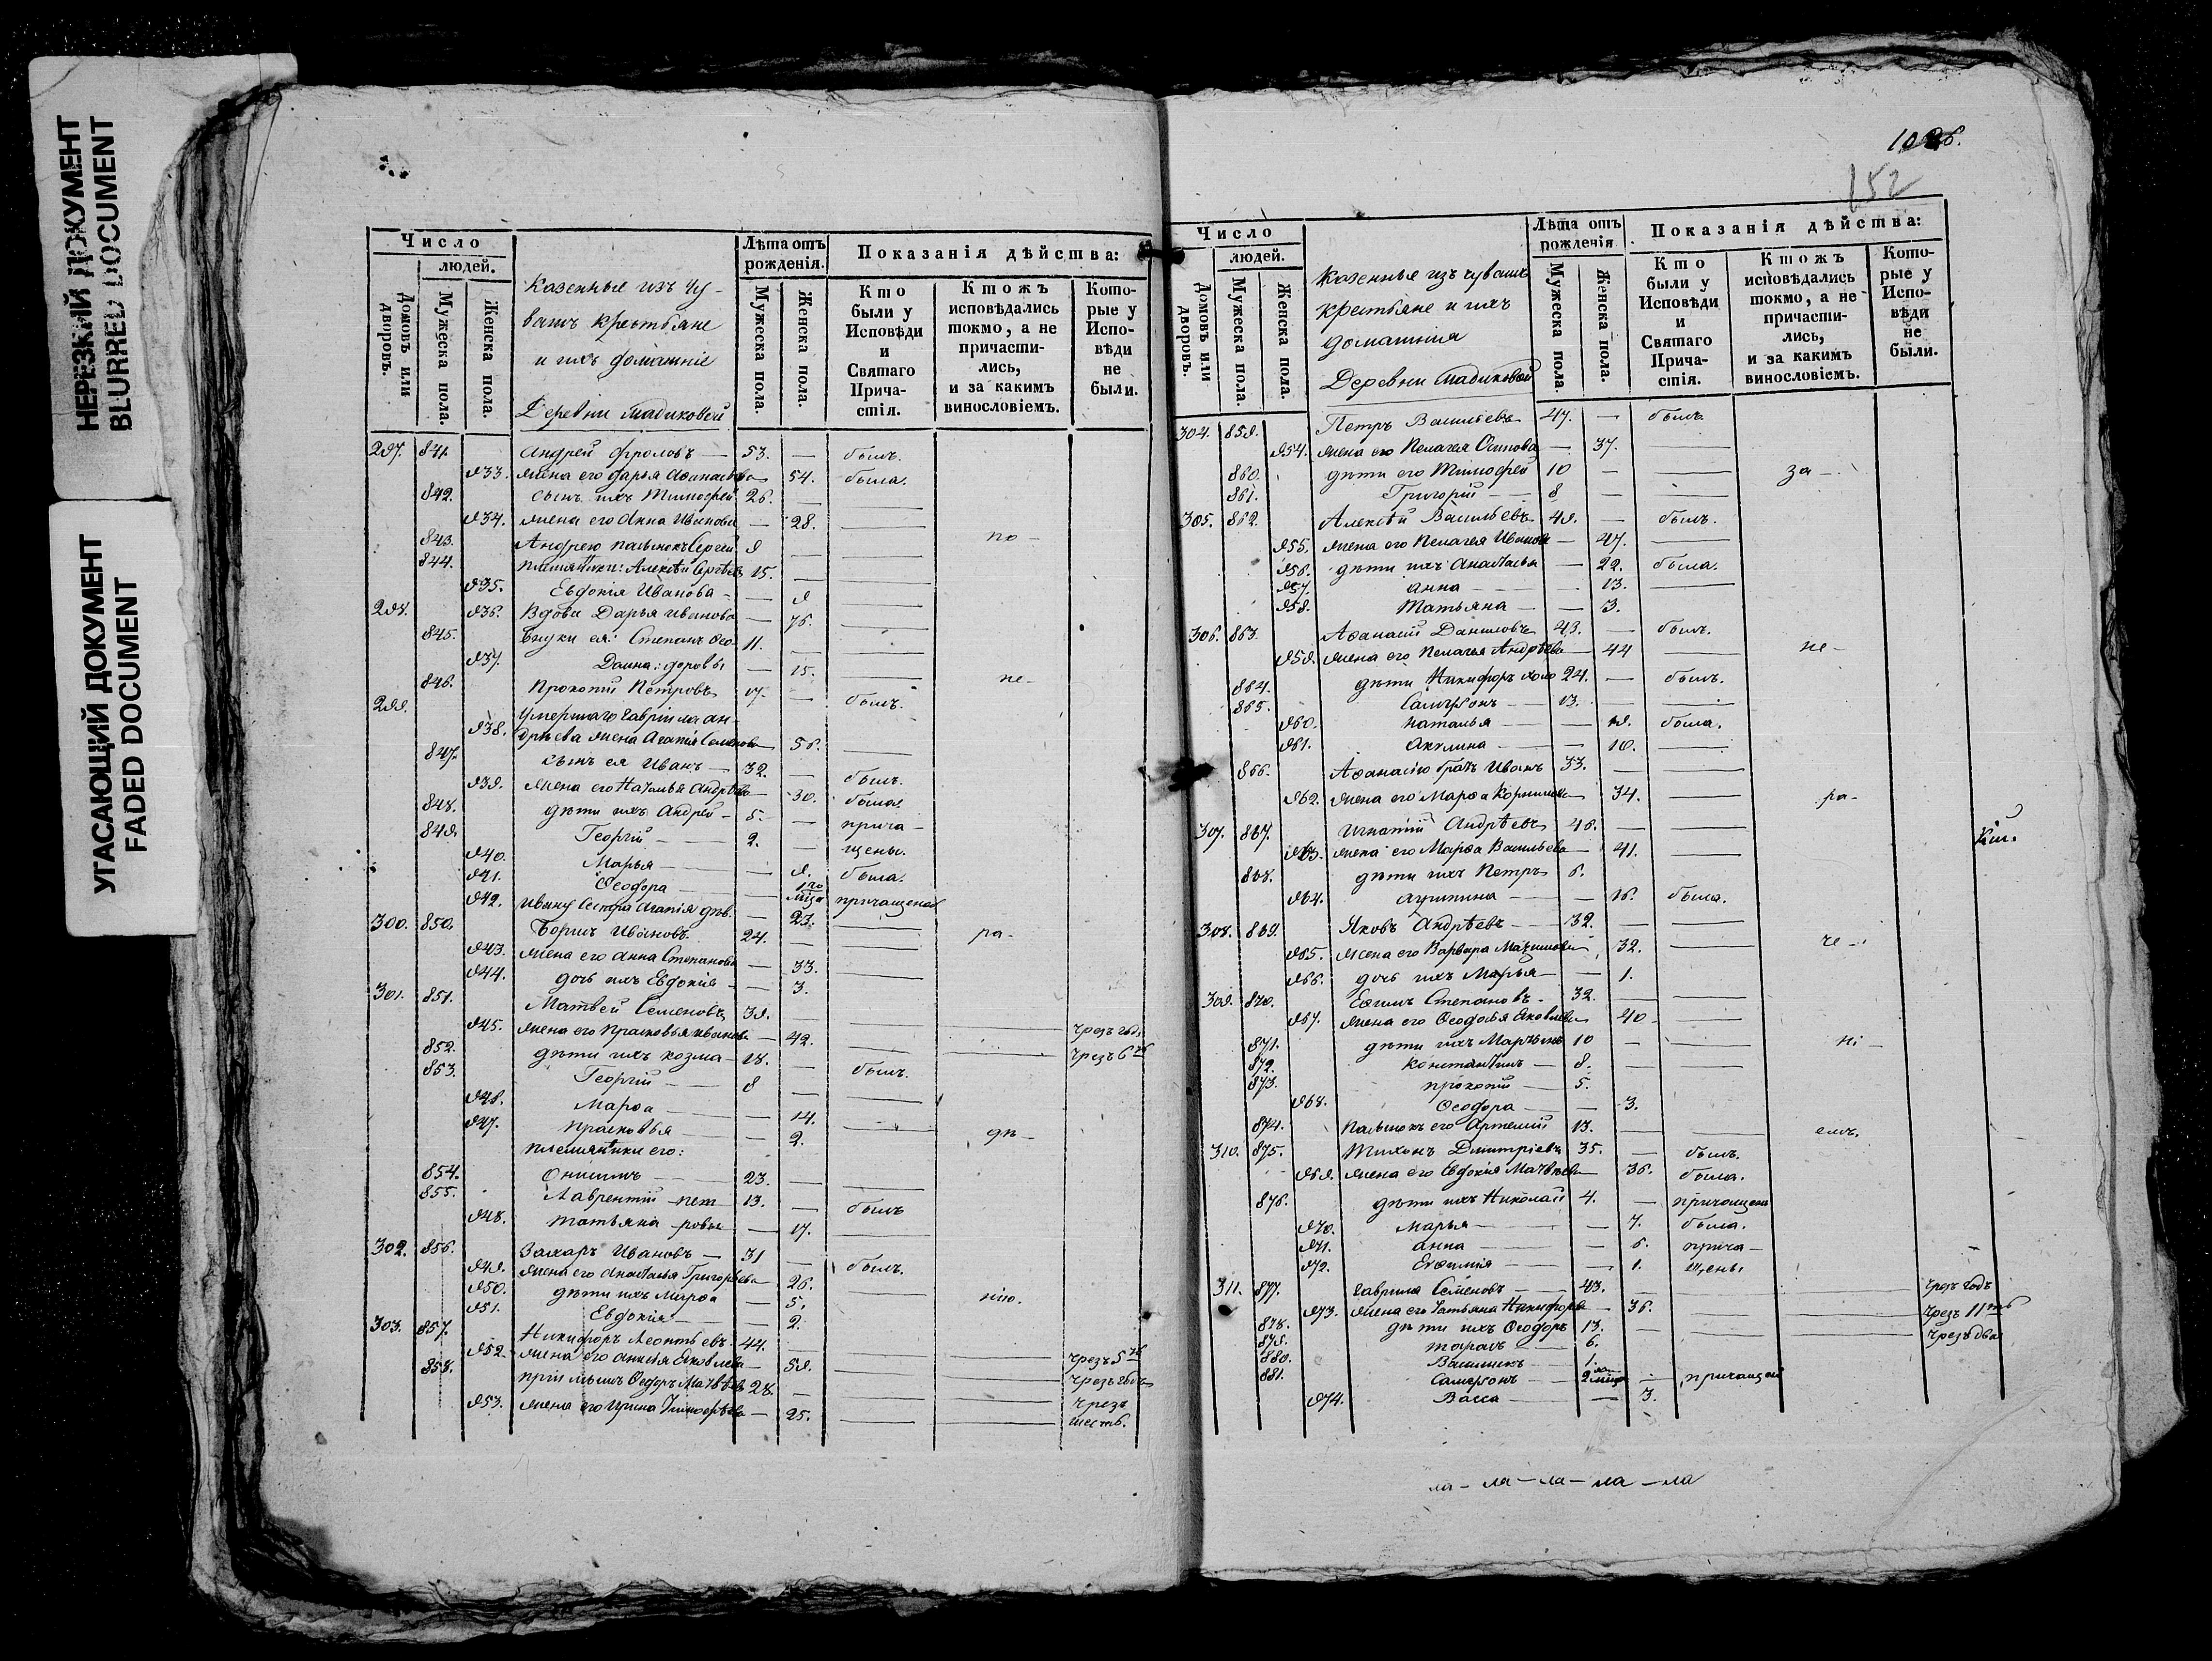 НЕРЕЗКИЙ ДОКУМЕНТ
BLURRED DOCUMENT
УГАСАЮЩИЙ ДОКУМЕНТ
FADED DOCUMENT
Число людей.
Домовъ или дворовъ.
Мужеска пола.
Женска пола.
Казенные изъ Чу-
вашъ крестьяне
и ихъ домашнiе
Деревни
Лѣта отъ рожденiя.
Мужеска пола.
Женска пола.
Показанiя дѣйства:
Кто были у Исповѣди и Святаго Прича-стiя.
Ктожъ исповѣдались токмо, а не причасти-лись, и за какимъ винословiемъ.
Кото-рые у Испо-вѣди не были.
297. 841. Андрей Фроловъ — 53. — былъ.
933. жена его Дарья Аѳанасьева 54. была.
842. сынъ ихъ Тимофей 26. —
934. жена его Анна Иванова — 28.
843. Андрею Сергей 9 — по-
844. племянники: Алексѣй Сергѣевъ 15. —
935. Евдокiя Иванова — 9
298. 936. Вдова Дарья Иванова — 76.
845. Внуки ея: Степанъ Ѳео- 11. —
937. Домна: доровы — 15.
846. Прокопiй Петровъ 17. — былъ. не-
299. Умершаго Гаврiила Ан-
938. дрѣева жена Агапiя Семенова 56.
847. сынъ ея Иванъ — 32. — былъ.
939. жена его Наталья Андрѣева 30. была.
848. дѣти ихъ Андрей — 5. — прича-
849. Георгiй — 2. — щены.
940. Марья — 9. была.
941. Ѳеодора — причащена
942. Ивану сестра Агапiя дѣв. — 23.
300. 850. Борисъ Ивановъ. 24. — ра-
943. жена его Анна Степанова — 33.
944. дочь ихъ Евдокiя — 3.
301. 851. Матвей Семеновъ 39. — чрезъ годъ
945. жена его Прасковья Иванова — 42. чрезъ 6ть
852. дѣти ихъ Козма — 18. — былъ.
853. Георгiй — 8 —
946. Марѳа — 14.
947. Прасковья — 2. дѣ-
племянники его:
854. Онисимъ — 23. —
855. Лаврентiй — пет 13. — былъ
948. Татьяна — ровы — 17.
302. 856. Захаръ Ивановъ — 31 — былъ.
949. жена его Анастасья Григорьева 26.
950. дѣти ихъ Марѳа — 5. нiю.
951. Евдокiя — 2.
303. 857. Никифоръ Леонтьевъ. 44. — чрезъ 5ть
952. жена его Яковлева — 59. чрезъ годъ
858. Ѳедоръ Матвѣевъ 28. — чрезъ
953. жена его Ирина Тимоѳѣева — 25. шесть.
152
Число людей.
Домовъ или дворовъ.
Мужеска пола.
Женска пола.
Казенные изъ чувашъ
крестьяне и ихъ
домашнiя
Деревни
Лѣта отъ рожденiя
Мужеска пола.
Женска пола.
Показанiя дѣйства:
Кто были у Исповѣди и Святаго Прича-стiя.
Ктожъ исповѣдались токмо, а не причасти-лись, и за какимъ винословiемъ.
Кото-рые у Испо-вѣди не были.
304. 859. Петръ Васильевъ 47. — былъ.
954. жена его Пелагея Осипова — 37.
860. дѣти его Тимофей 10 — за-
861. Григорiй — 8 —
305. 862. Алексѣй Васильевъ 49. — былъ.
955. жена его Пелагея Иванова — 47.
956. дѣти ихъ Анастасья — 22. была.
957. Анна — 13.
958. Татьяна — 3.
306. 863. Аѳанасiй Даниловъ 43. — былъ.
959. жена его Пелагея Андрѣева 44 не-
864. дѣти Никифоръ холо 24. — былъ.
865. Сампсонъ — 13. —
960. Наталья — 19. была.
961. Акулина — 10.
866. Аѳанасiю братъ Иванъ 33. —
962. жена его Марѳа 34. ра-
307. 867. Игнатiй Андрѣевъ 46. — кiи.
963. жена его Марѳа Васильева 41.
868. дѣти ихъ Петръ 6.
964. — 16. была.
308. 869. Яковъ Андрѣевъ — 32. —
965. жена его Варвара Максимова 32. че-
966. дочь ихъ Марья — 1.
309. 870. Еѳимъ Степановъ — 32. —
967. жена его Ѳеодосья Яковлева 40
871. дѣти ихъ 10 — нi-
872. Константинъ — 8. —
873. Прокопiй — 5.
968. Ѳеодора — 3.
874. его Артемiй 13. — емъ.
310. 875. Тихонъ Дмитрiевъ 35. — былъ.
969. жена его Евдокiя Матвѣева 36. была.
876. дѣти ихъ Николай 4. — причащены
970. Марья — 7. была.
971. Анна — 6. прича-
972. Евѳимiя — 1. щены
311. 877. Гаврила Семеновъ — 43. — чрезъ годъ
973. жена его Татьяна Никифорова 36. чрезъ 11ть
878. дѣти ихъ Ѳеодоръ 13. — чрезъ два
879. Тарасъ — 6.
880. — 1.
881. Сампсонъ — причащенъ
974. Васса — 3.
ла-ла-ла-ла-ла